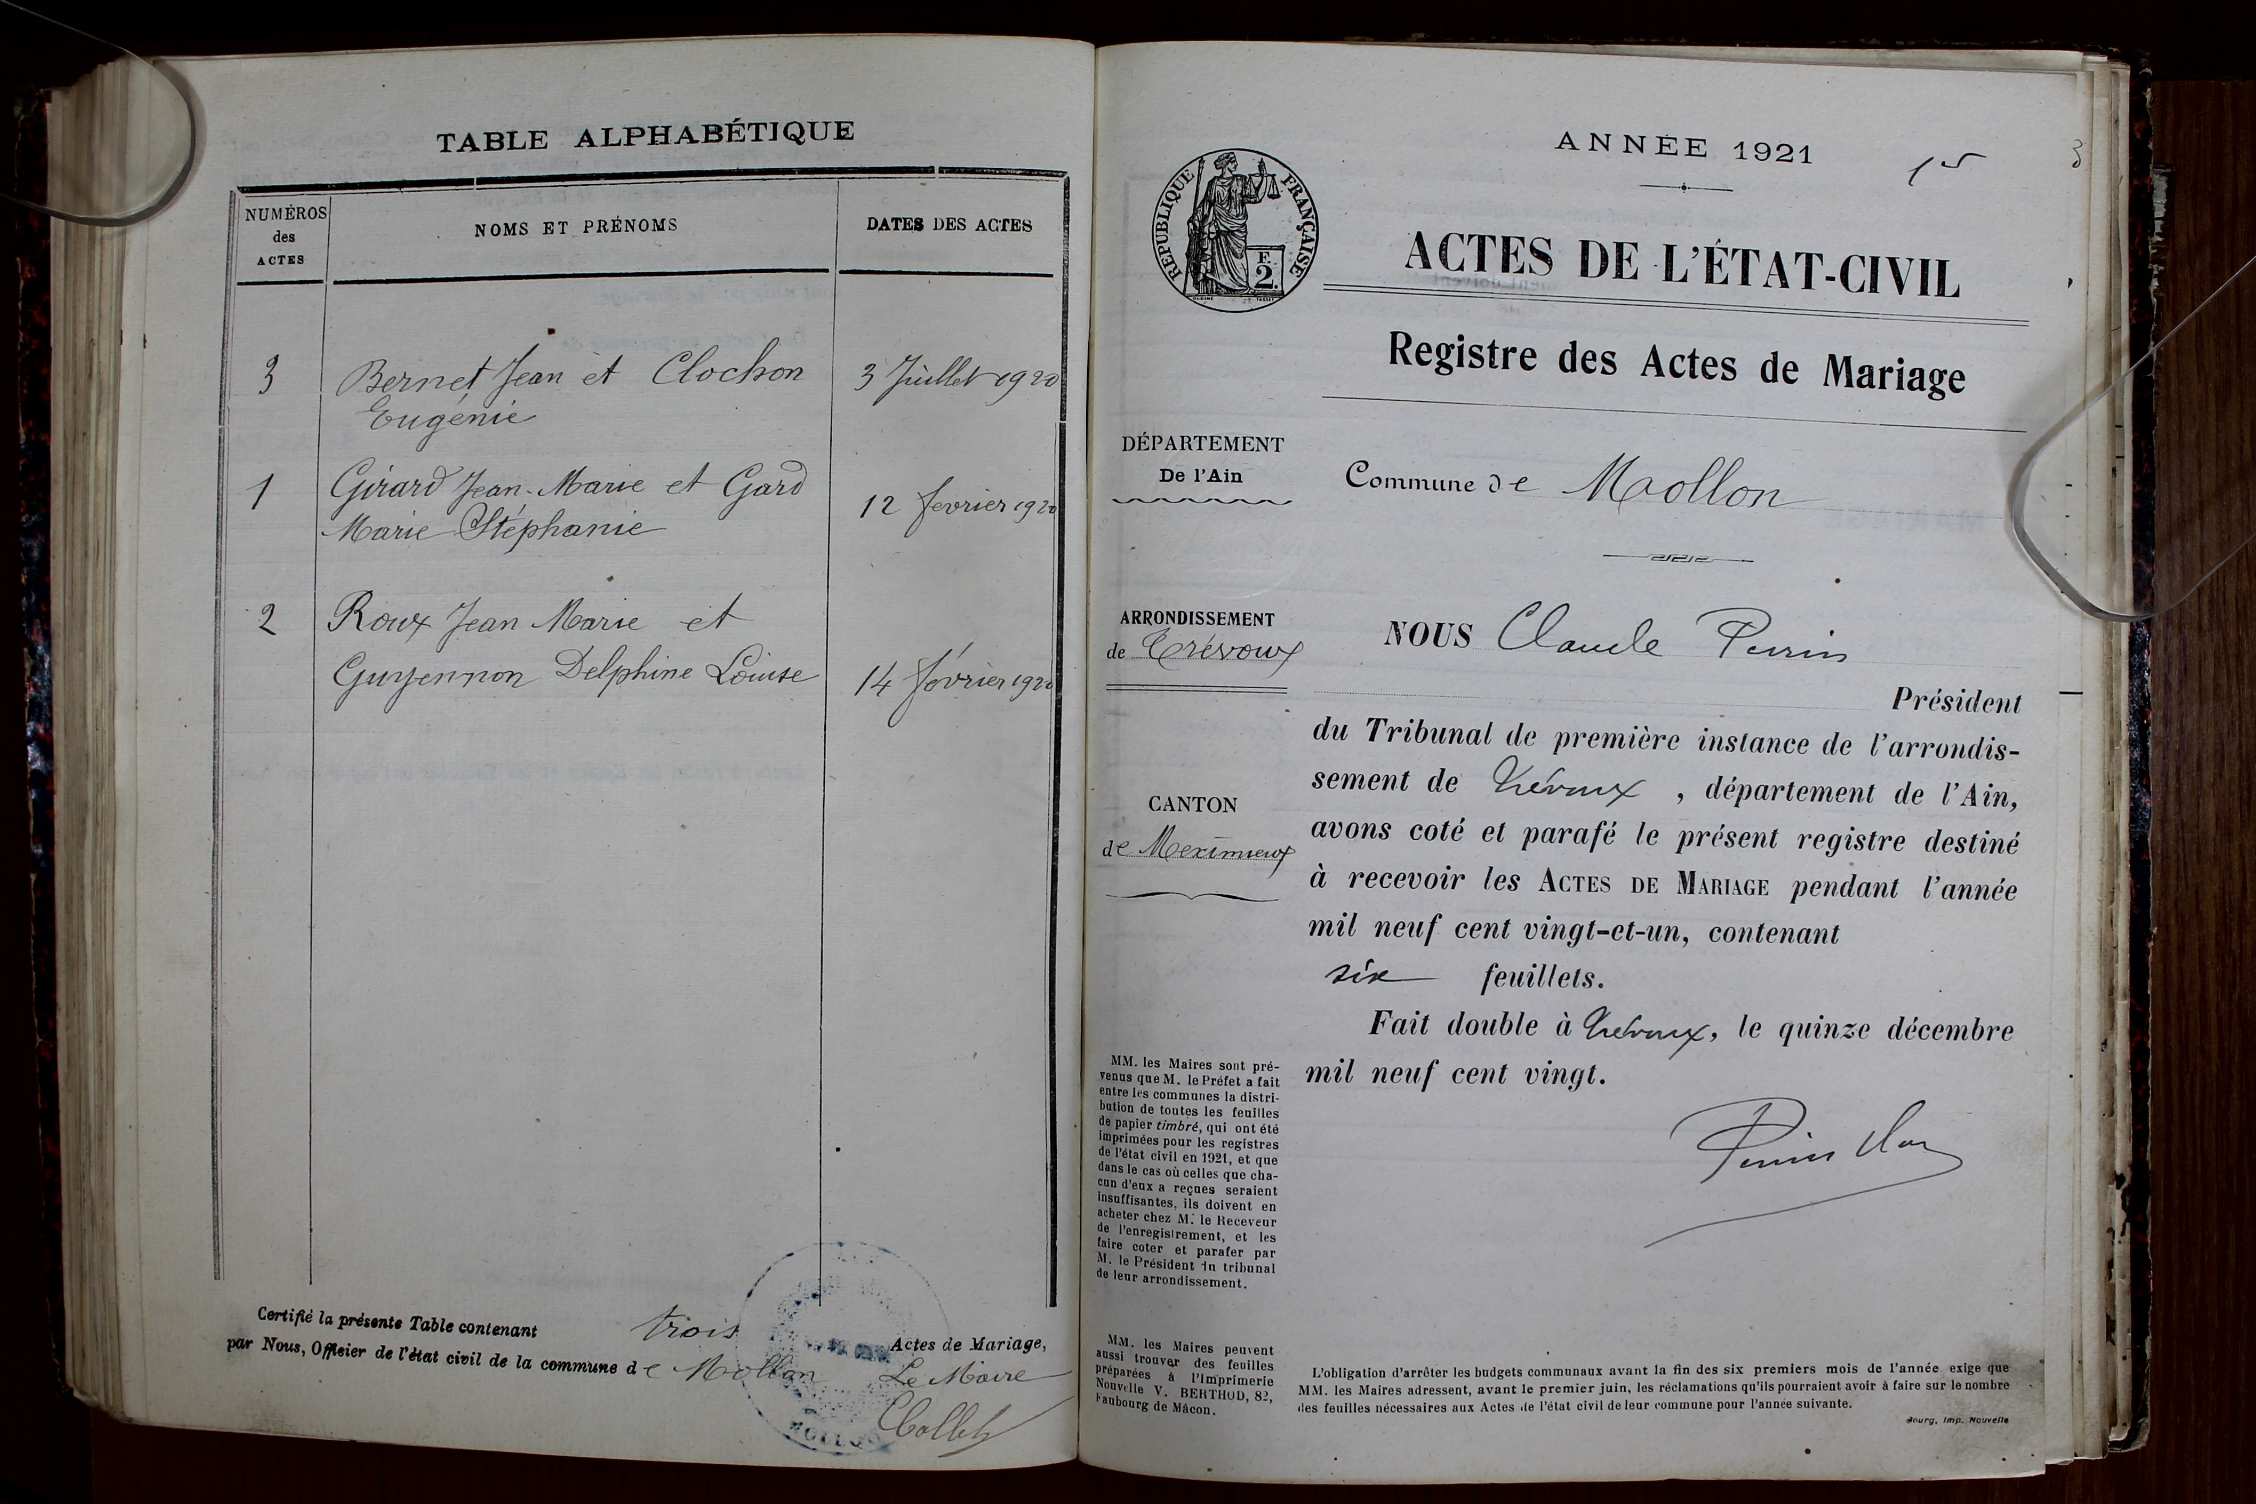 TABLE ALPHABÉTIQUE
NUMÉROS
des
ACTES
NOMS ET PRÉNOMS
DATES DES ACTES
3 Bernet Jean et Clochon 3 Juillet 1920
Eugénie
1 Girard Jean-Marie et Gard 12 fevrier 1920
Marie Stéphanie
2 Roux Jean Marie et
Guyennon Delphine Louise 14 février 1920
Certifié la présente Table contenant trois Actes de Mariage,
par Nous, Officier de l'état civil de la commune de Mollon
Le Maire
Collet
ANNÉE 1921
15
3
RÉPUBLIQUE FRANÇAISE
F.
2.
ACTES DE L'ÉTAT-CIVIL
Registre des Actes de Mariage
DÉPARTEMENT
De l'Ain
Commune de Mollon
ARRONDISSEMENT
de Trévoux
CANTON
de Meximieux
NOUS Claude Perrin
Président
du Tribunal de première instance de l'arrondis-
sement de Trévoux , département de l'Ain,
avons coté et parafé le présent registre destiné
à recevoir les ACTES DE MARIAGE pendant l'année
mil neuf cent vingt-et-un, contenant
six feuillets.
Fait double à Trévoux, le quinze décembre
mil neuf cent vingt.
Perrin
MM. les Maires sont pré-
venus que M. le Préfet a fait
entre les communes la distri-
bution de toutes les feuilles
de papier timbré, qui ont été
imprimées pour les registres
de l'état civil en 1921, et que
dans le cas où celles que cha-
cun d'eux a reçues seraient
insuffisantes, ils doivent en
acheter chez M. le Receveur
de l'enregistrement, et les
faire coter et parafer par
M. le Président du tribunal
de leur arrondissement.
MM. les Maires peuvent
aussi trouver des feuilles
préparées à l'Imprimerie
Nouvelle V. BERTHOD, 82,
Faubourg de Mâcon.
L'obligation d'arrêter les budgets communaux avant la fin des six premiers mois de l'année exige que
MM. les Maires adressent, avant le premier juin, les réclamations qu'ils pourraient avoir à faire sur le nombre
des feuilles nécessaires aux Actes de l'état civil de leur commune pour l'année suivante.
Bourg, Imp. Nouvelle